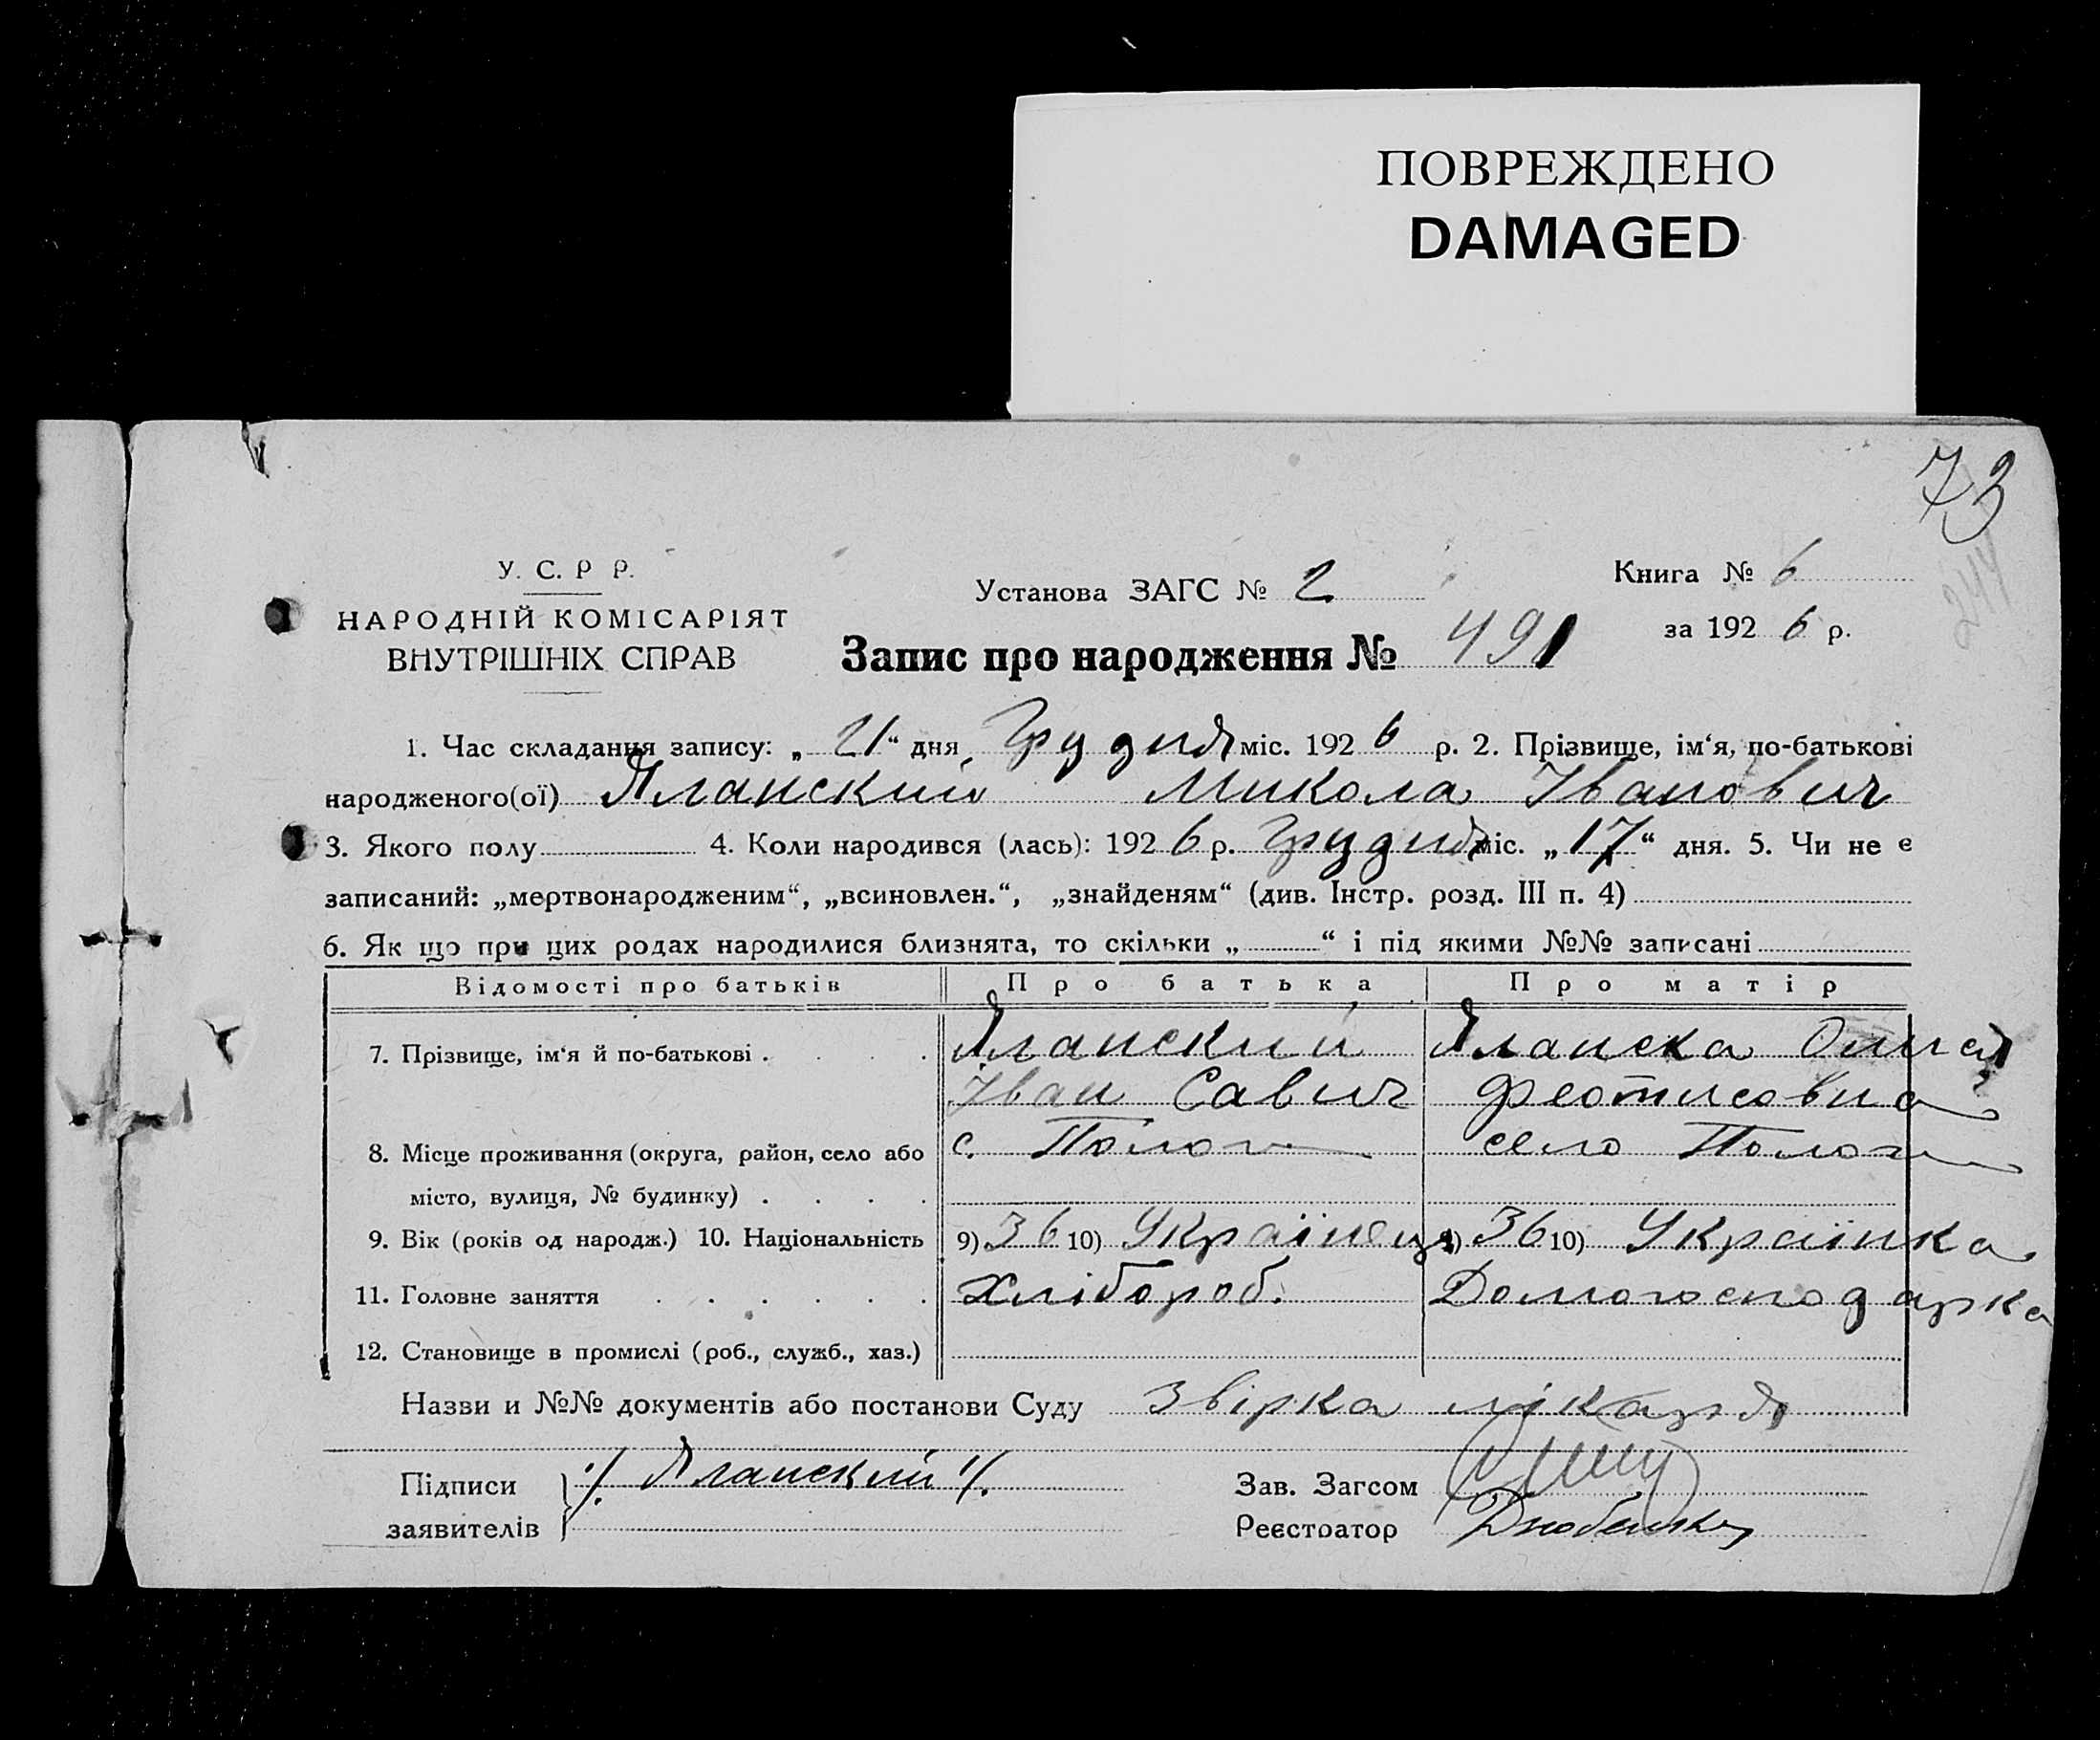 ПОВРЕЖДЕНО
DAMAGED
73
244
У. С. Р Р.
НАРОДНІЙ КОМІСАРІЯТ
ВНУТРІШНІХ СПРАВ
Установа ЗАГС № 2
Книга № 6
за 1926 р.
Запис про народження № 491
1. Час складання запису: „21“ дня Грудня міс. 1926 р. 2. Прізвище, ім‘я, по-батькові
народженого(ої) Яланский Микола Іванович
3. Якого полу 4. Коли народився (лась): 1926 р. Грудня міс. „17“ дня. 5. Чи не є
записаний: „мертвонародженим“, „всиновлен.“, „знайденям“ (див. Інстр. розд. III п. 4)
6. Як що при цих родах народилися близнята, то скільки „ “ і під якими №№ записані
Відомості про батьків Про батька Про матір
7. Прізвище, ім‘я й по-батькові . . . . Яланский Яланска
Іван Савич Феотисовна
8. Місце проживання (округа, район, село або с. Пологи село Пологи
місто, вулиця, № будинку) . . . .
9. Вік (років од народж.) 10. Національність 9) 36 10) Українець 9) 36 10) Українка
11. Головне заняття . . . . . . Хлібороб. Домогосподарка
12. Становище в промислі (роб., служб., хаз.)
Назви и №№ документів або постанови Суду звірка лікаря
Підписи /. Яланский /.
заявителів
Зав. Загсом
Реєстратор